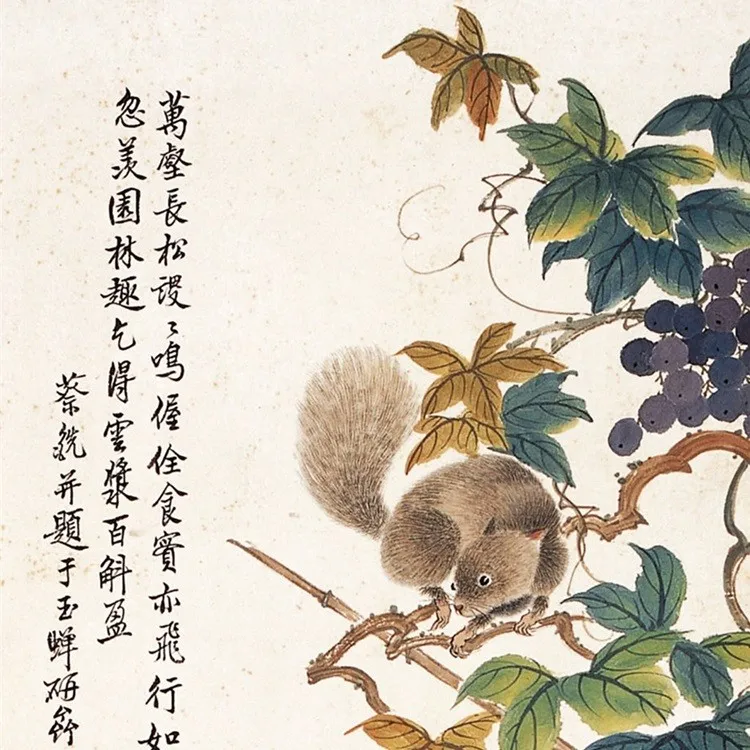 萬壑長松謖〻鳴偓佺食實亦飛行如
忽羨園林趣乞得雲漿百斛盈
蔡銑并題于玉蟬研